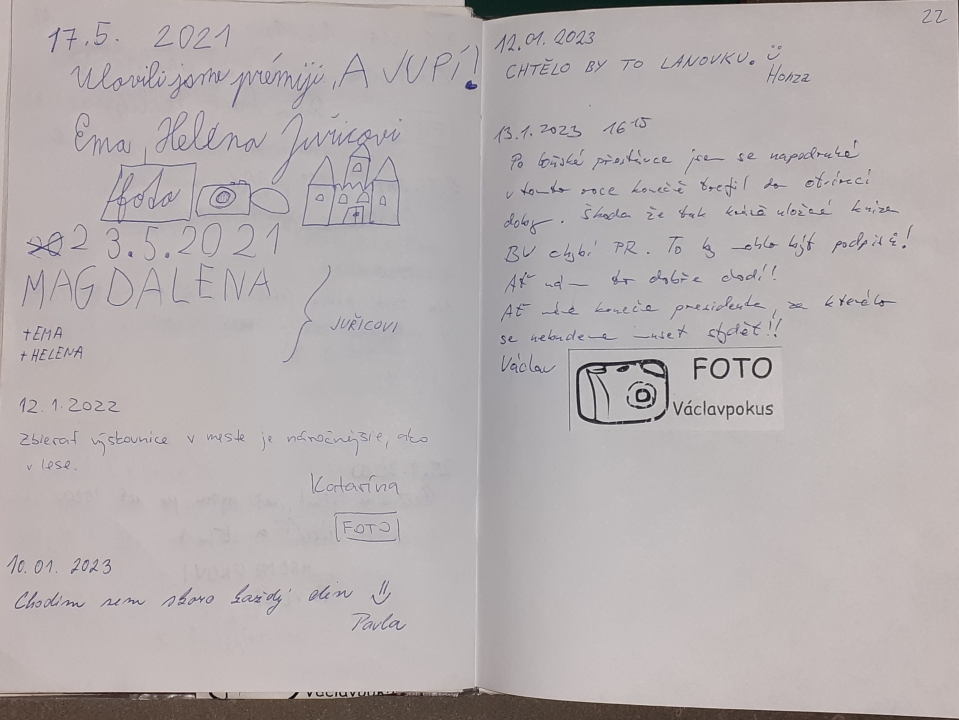 17.5. 2021
Ulovili jsme prémiji, A JUPÍ!
Ema, Helena Juřicovi
foto
23.5.2021
MAGDALENA
+EMA
+HELENA
JUŘICOVI
12.1.2022
Zbierať výstovnice v meste je náročnejšie, ako
v lese.
Katarína
FOTO
10.01.2023
Chodím sem skoro každý den
Pavla
22
12.01.2023
CHTĚLO BY TO LANOVKU.
Honza
13.1.2023 1615
Po loňské přestávce jsem se napodruhé
v tomto roce konečně trefil do otvírací
doby. Škoda že tak krásně uložené knize
BV chybí PR. To by mohlo být podpisů!
Ať nám to dobře chodí!!
Ať máme konečně presidenta, za kterého
se nebudeme muset stydět!!
Václav
FOTO
Václavpokus
Václavpokus